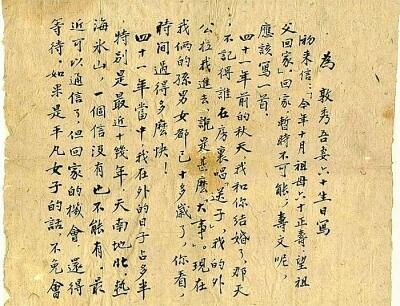 為 敦秀吾妻六十生日寫
初来信：「今年十月祖母六十正壽，望祖
父回家」回家暫時不可能，壽文呢，
應該寫一首。
四十一年前的秋天，我和你結婚了，那天
不記得誰在房裏唱"送子"，我的外
公拉我進去，說是甚麽"大事"。現在
我倆的孫男女都已十多歲了，你看，
時間過得多麽快！
四十一年當中，我在外的日子占多半
特別是最近十幾年，天南地北，熱
海氷山，一個信没有也不能有。最
近可以通信了，但回家的機會還得
等待。如果是平凡女子的話，不免會